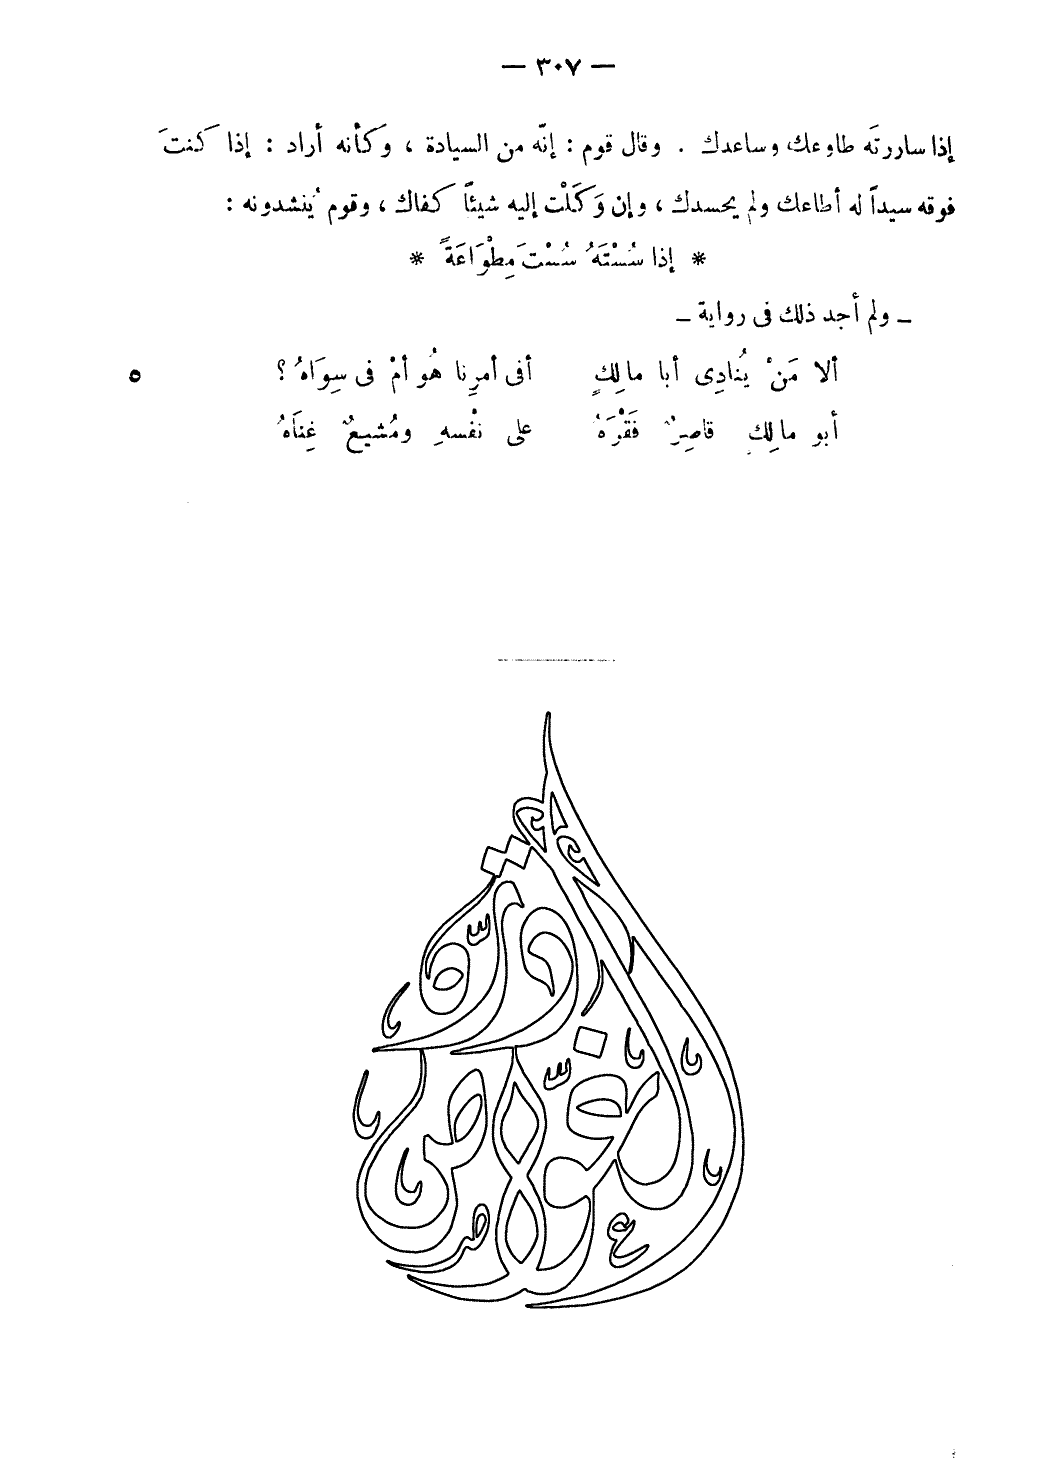 — ٣٠٧ —
إذا ساررتَه طاوعك وساعدك . وقال قوم : إنّه من السيادة ، وكأنه أراد : إذا كنتَ
فوقه سيداً له أطاعك ولم يحسدك ، وإن وَكَلْت إليه شيئاً كفاك ، وقوم يُنشدونه :
* إذا سُسْتَهُ سُسْتَ مِطْوَاعَةً *
ــ ولم أجد ذلك فى رواية ــ
ألا مَنْ يُنادِى أبا مالِكٍ أفى أمرِنا هُو أمْ فى سِوَاهُ ؟ ٥
أبو مالِك قاصِرٌ فَقْرَهُ على نفْسهِ ومُشيعٌ غِنَاهُ
درة الغواص